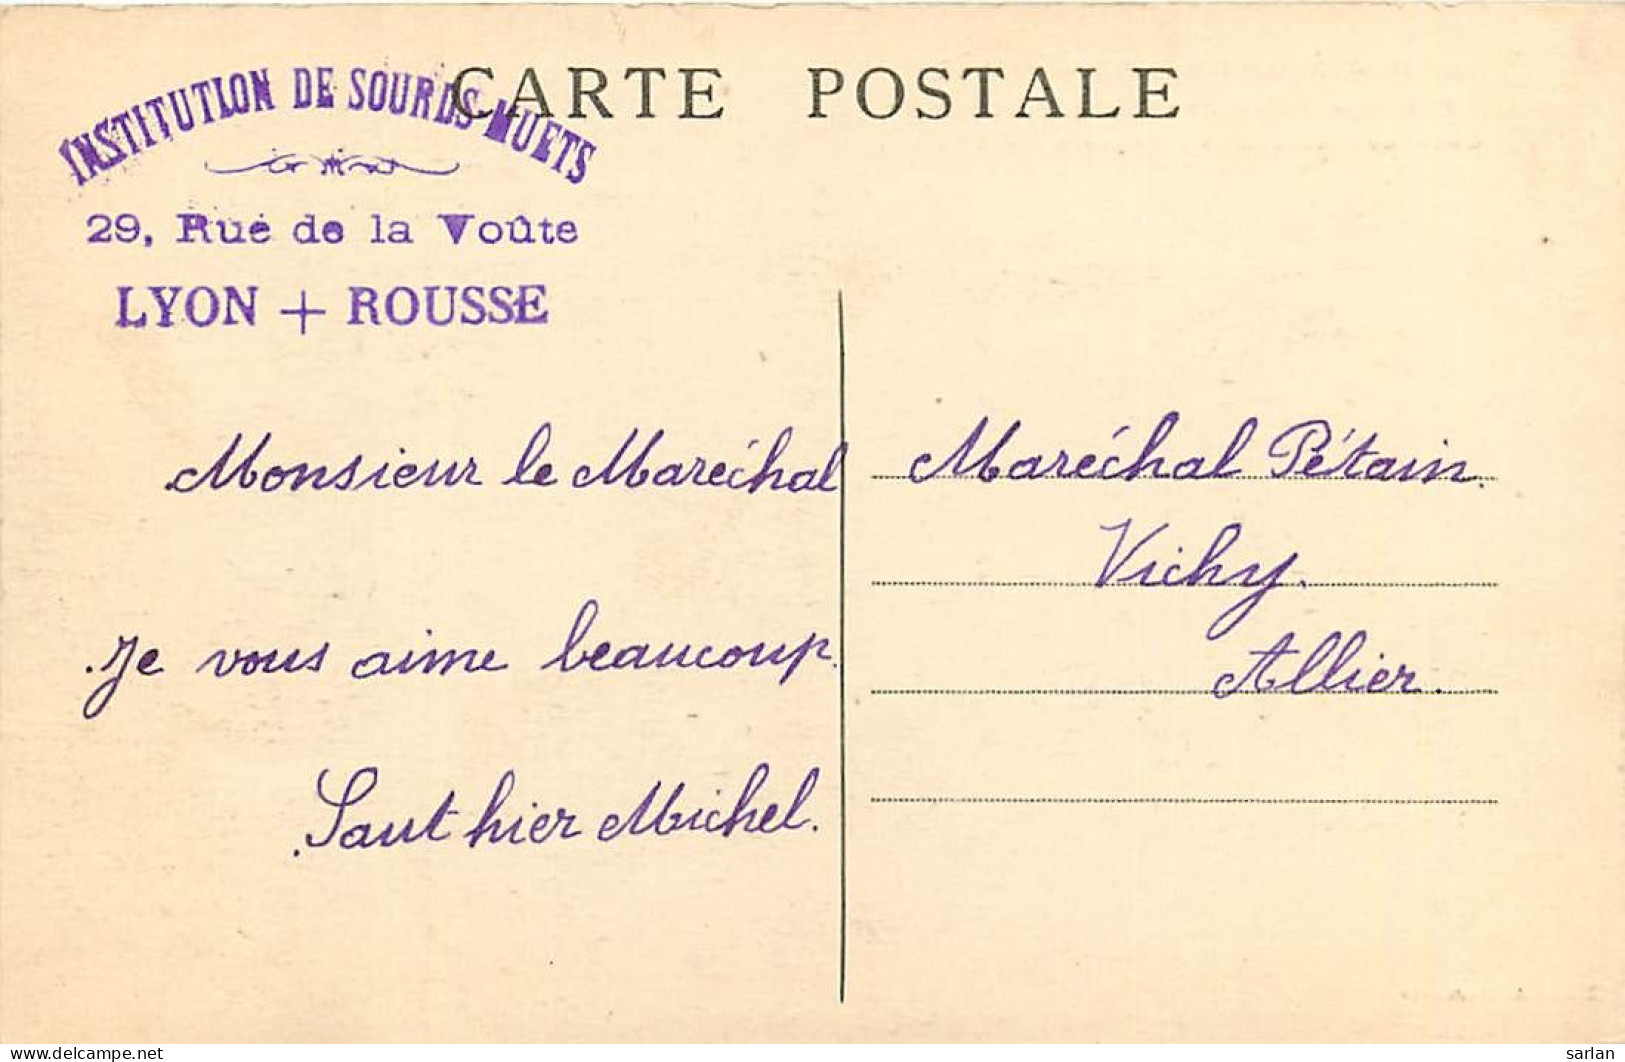 CARTE POSTALE
INSTITUTION DE SOURDS-MUETS
29, Rue de la Voûte
LYON + ROUSSE
Monsieur le Maréchal
Je vous aime beaucoup.
Sauthier Michel.
Maréchal Pétain.
Vichy.
Allier.
delcampe.net
sarlan